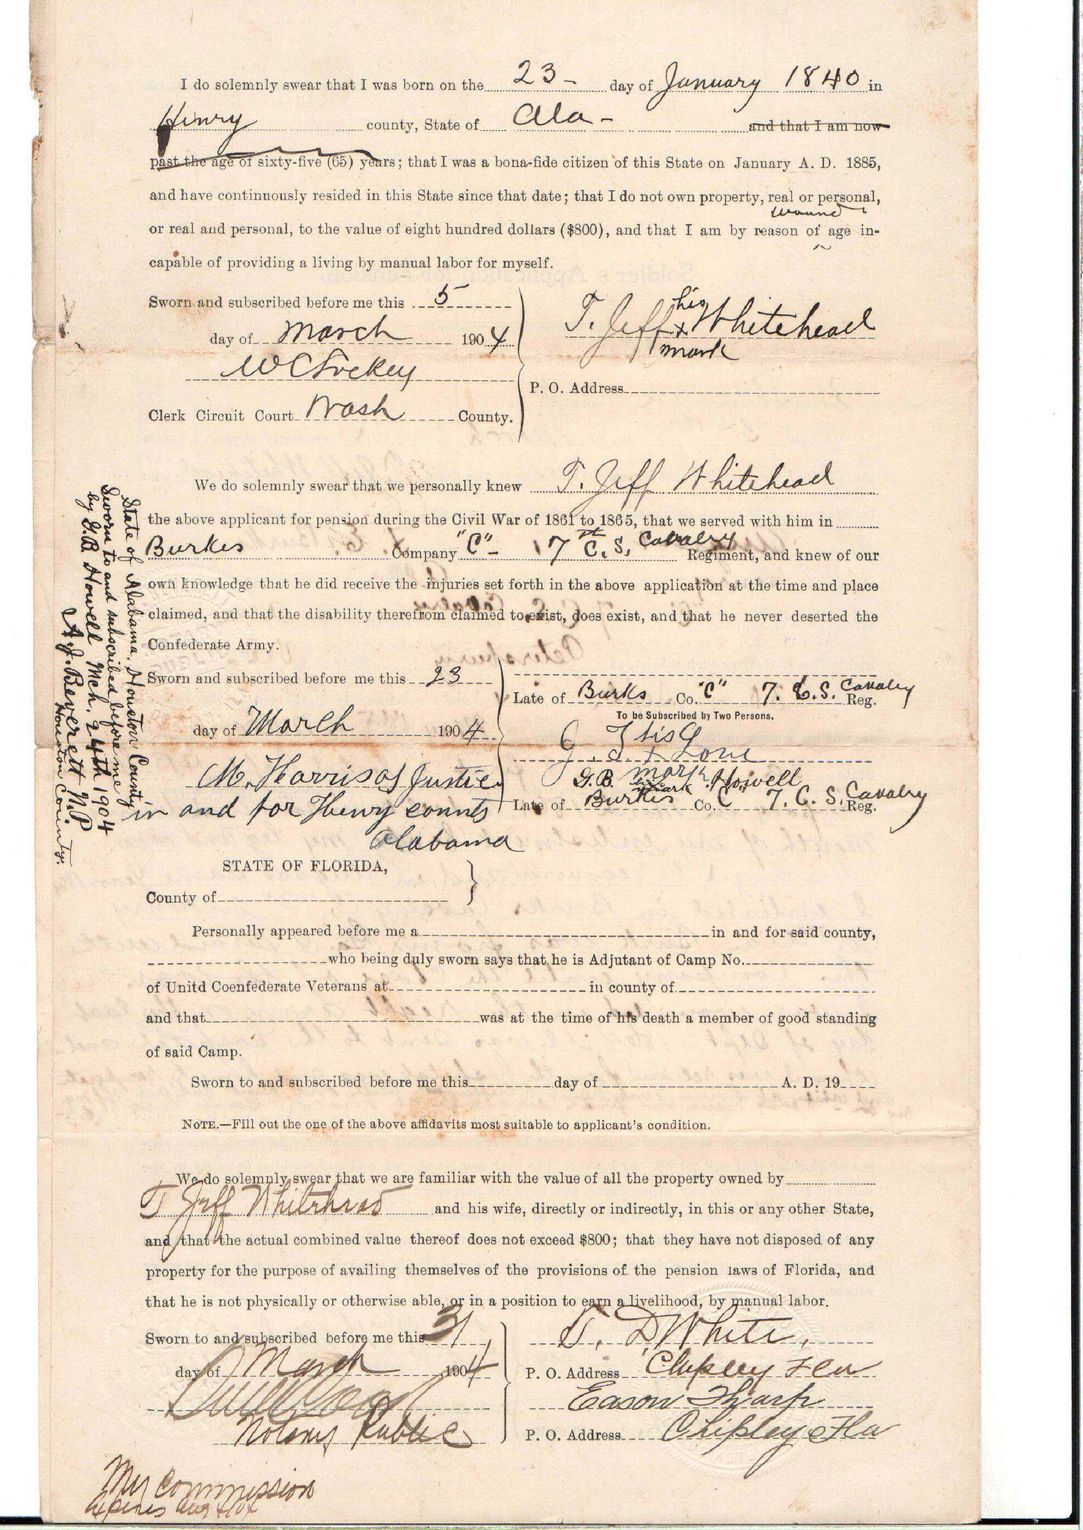 I do solemnly swear that I was born on the 23 - day of January 1840 in
Henry county, State of Ala - and that I am now
past the age of sixty-five (65) years; that I was a bona-fide citizen of this State on January A. D. 1885,
and have continuously resided in this State since that date; that I do not own property, real or personal,
wound
or real and personal, to the value of eight hundred dollars ($800), and that I am by reason of age in-
capable of providing a living by manual labor for myself.
Sworn and subscribed before me this 5
day of March 1904
W C Lockey
Clerk Circuit Court Wash County.
his
T. Jeff x Whitehead
mark
P. O. Address
We do solemnly swear that we personally knew T. Jeff Whitehead
the above applicant for pension during the Civil War of 1861 to 1865, that we served with him in
Burkes Company "C" - 7th C. S. Cavalry Regiment, and knew of our
own knowledge that he did receive the injuries set forth in the above application at the time and place
claimed, and that the disability therefrom claimed to exist, does exist, and that he never deserted the
Confederate Army.
Sworn and subscribed before me this 23
day of March 1904
M. Harris as Justice
in and for Henry county
Alabama
Late of Burks Co. "C" 7. C. S. Cavalry Reg.
To be Subscribed by Two Persons.
his
J. T. x Love
mark
G. B. Howell
mark
Late of Burkes Co. C 7. C. S. Cavalry Reg.
State of Alabama, Houston County
Sworn to and subscribed before me
by G. B. Howell Mch. 24th 1904
A. J. Beverett N. P.
Houston County.
STATE OF FLORIDA,
County of
Personally appeared before me a in and for said county,
who being duly sworn says that he is Adjutant of Camp No.
of Unitd Coenfederate Veterans at in county of
and that was at the time of his death a member of good standing
of said Camp.
Sworn to and subscribed before me this day of A. D. 19
NOTE.—Fill out the one of the above affidavits most suitable to applicant's condition.
We do solemnly swear that we are familiar with the value of all the property owned by
T Jeff Whitehead and his wife, directly or indirectly, in this or any other State,
and that the actual combined value thereof does not exceed $800; that they have not disposed of any
property for the purpose of availing themselves of the provisions of the pension laws of Florida, and
that he is not physically or otherwise able, or in a position to earn a livelihood, by manual labor.
Sworn to and subscribed before me this 31
day of March 1904
Notary Public
My Commission
expires Aug
T. D. White,
P. O. Address Chipley Fla
Eason Tharp
P. O. Address Chipley Fla